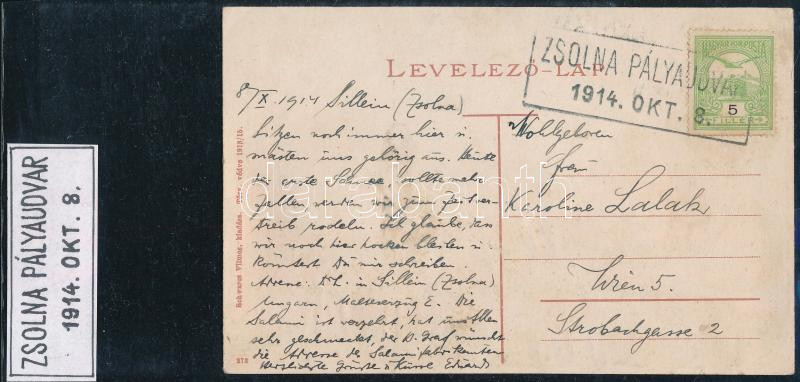 ZSOLNA PÁLYAUDVAR
1914. OKT. 8.
LEVELEZŐ-LAP
ZSOLNA PÁLYAUDVAR
1914. OKT. 8.
MAGYAR KIR. POSTA
5
FILLÉR
8/X. 1914 Sillein (Zsolna)
Sitzen noch immer hier u.
mästen uns gehörig aus. Heute
der erste Schnee, sollte mehr
fallen, werden wir zum Zeitver-
treib rodeln. Ich glaube, dass
wir noch hier hocken bleiben u.
könntest Du mir schreiben.
Adresse: E. L. in Sillein (Zsolna)
Ungarn, Malteserzug E. Die
Salami ist verzehrt, hat uns Allen
sehr geschmeckt, der Graf wünscht
die Adresse der Salamifabrikanten
Herzlichste Grüsse u Küsse Eduard
Wohlgeboren
Frau
Karoline Lalak
Wien 5.
Strobachgasse 2
Schwarz Vilmos, kiadása. Törv. védve 1913/15.
darabanth